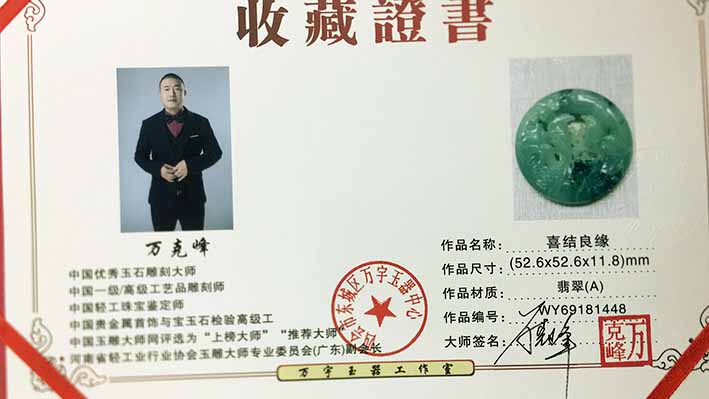 收藏證書
万克峰
中国优秀玉石雕刻大师
中国一级/高级工艺品雕刻师
中国轻工珠宝鉴定师
中国贵金属首饰与宝玉石检验高级工
中国玉雕大师网评选为“上榜大师” “推荐大师”
河南省轻工业行业协会玉雕大师专业委员会(广东)副会长
四会市东城区万宇玉器中心
作品名称: 喜结良缘
作品尺寸: (52.6x52.6x11.8)mm
作品材质: 翡翠(A)
作品编号: WY69181448
大师签名: 万克峰
万克峰
万宇玉器工作室